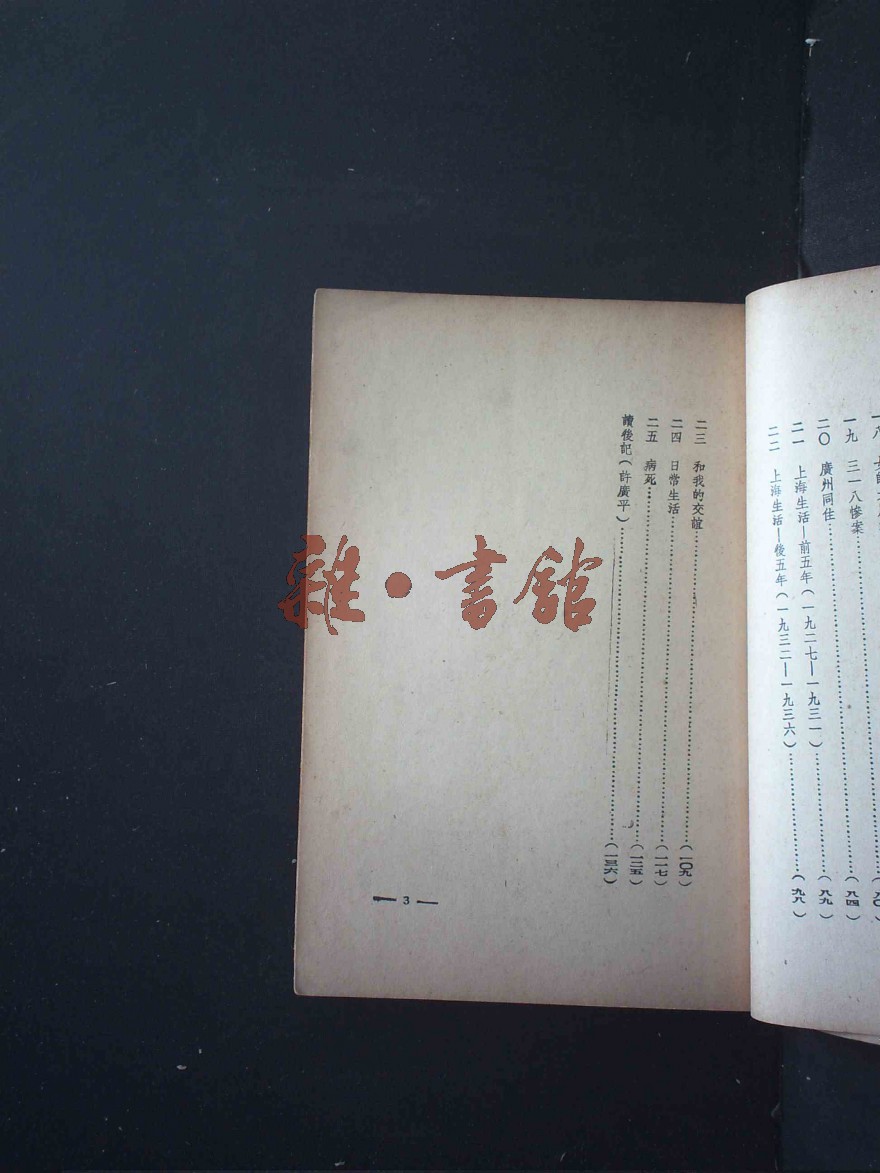 一八
一九 三一八慘案……………(八〇)
二〇 廣州同住……………(八四)
二一 上海生活—前五年(一九二七—一九三一)……………(八九)
二二 上海生活—後五年(一九三二—一九三六)……………(九八)
二三 和我的交誼……………(一〇九)
二四 日常生活……………(一一七)
二五 病死……………(一二五)
讀後記(許廣平)……………(一三六)
— 3 —
雜·書館